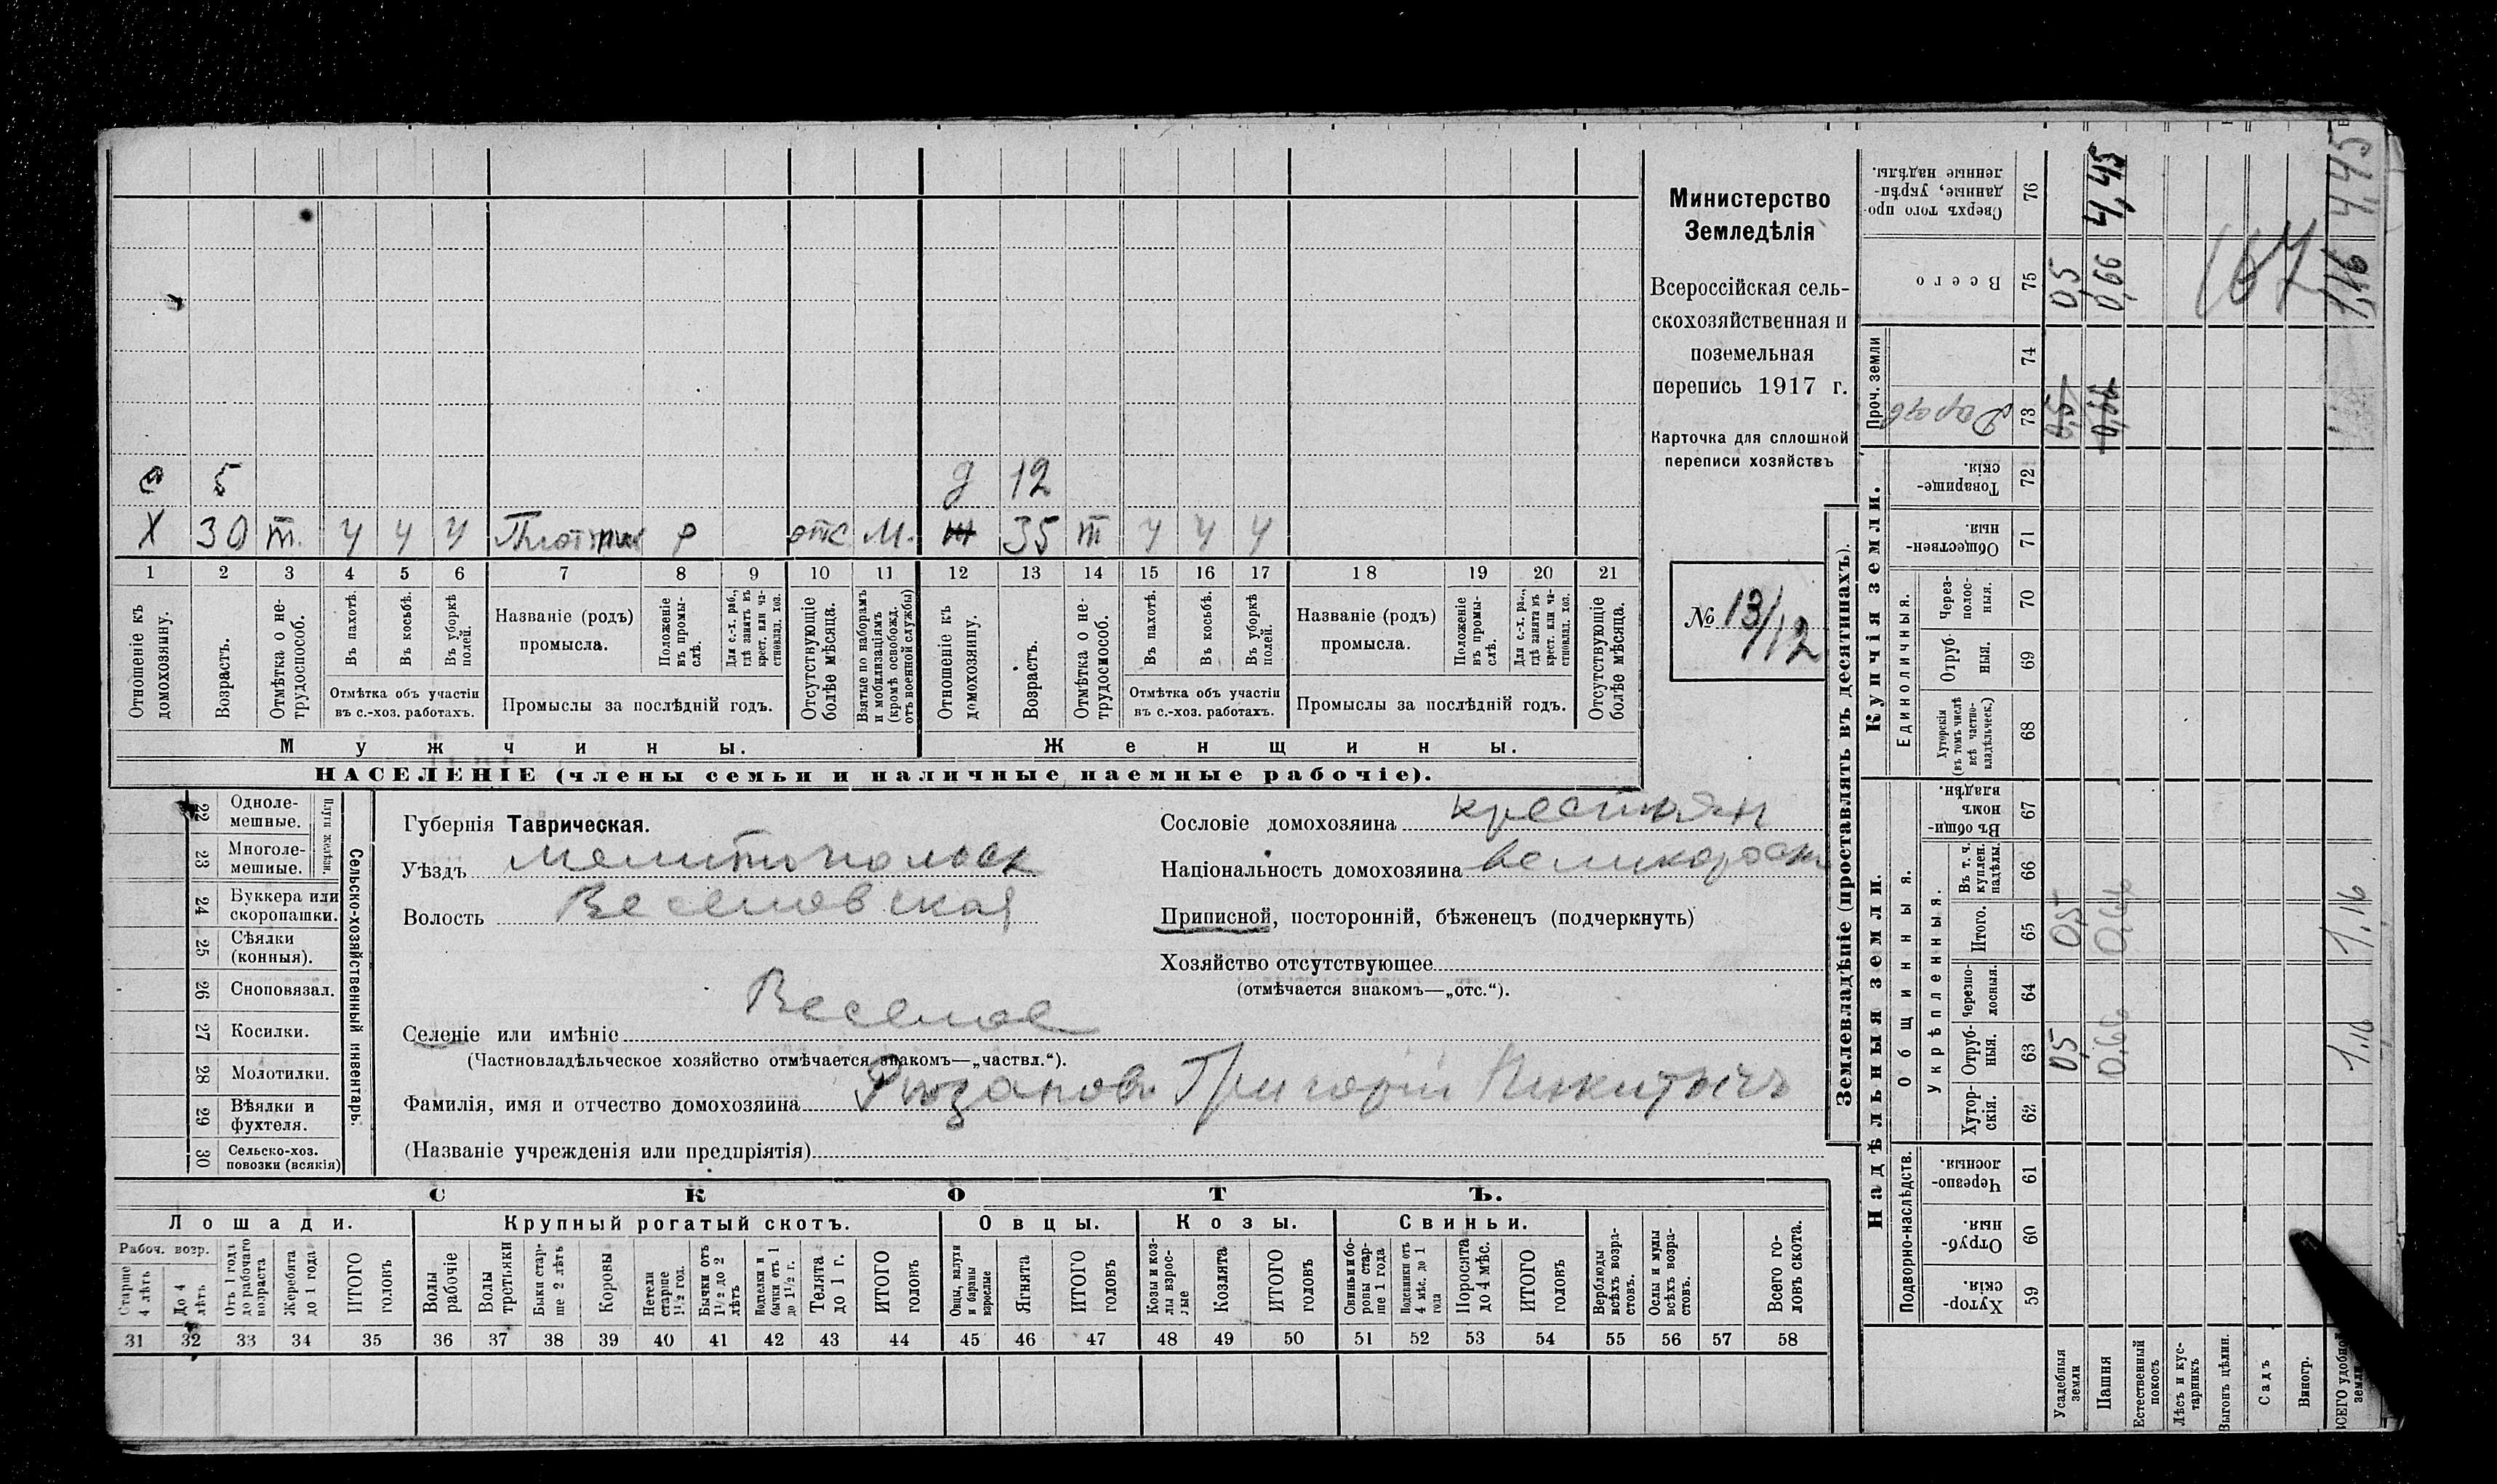 с 5 д 12
Х 30 т. ч ч ч Плотник р отс М. ж 35 т ч ч ч
1 2 3 4 5 6 7 8 9 10 11 12 13 14 15 16 17 18 19 20 21
Отношеніе къ домохозяину.
Возрастъ.
Отмѣтка о не-трудоспособ.
Въ пахотѣ.
Въ косьбѣ.
Въ уборкѣ полей.
Отмѣтка объ участіи въ с.-хоз. работахъ.
Названіе (родъ) промысла.
Положеніе въ промы-слѣ.
Для с.-х. раб., гдѣ занятъ въ крест. или ча-стновлад. хоз.
Промыслы за послѣдній годъ.
Отсутствующіе болѣе мѣсяца.
Взятые по наборамъ и мобилизаціямъ (кромѣ освобожд. отъ военной службы)
Отношеніе къ домохозяину.
Возрастъ.
Отмѣтка о не-трудоспособ.
Въ пахотѣ.
Въ косьбѣ.
Въ уборкѣ полей.
Отмѣтка объ участіи въ с.-хоз. работахъ.
Названіе (родъ) промысла.
Положеніе въ промы-слѣ.
Для с.-х. раб., гдѣ занята въ крест. или ча-стновлад. хоз.
Промыслы за послѣдній годъ.
Отсутствующіе болѣе мѣсяца.
Мужчины.
Женщины.
НАСЕЛЕНІЕ (члены семьи и наличные наемные рабочіе).
Министерство
Земледѣлія
Всероссійская сель-
скохозяйственная и
поземельная
перепись 1917 г.
Карточка для сплошной
переписи хозяйствъ
№ 13/12
22 Одноле-мешные.
23 Многоле-мешные.
Плуги желѣзн.
24 Буккера или скоропашки.
25 Сѣялки (конныя).
26 Сноповязал.
27 Косилки.
28 Молотилки.
29 Вѣялки и фухтеля.
30 Сельско-хоз. повозки (всякія)
Сельско-хозяйственный инвентарь.
Губернія Таврическая.
Уѣздъ Мелитопольск
Волость Веселовская
Селеніе или имѣніе Веселое
(Частновладѣльческое хозяйство отмѣчается знакомъ—„частвл.“).
Фамилія, имя и отчество домохозяина Рюзановъ Григорій Никитычъ
(Названіе учрежденія или предпріятія)
Сословіе домохозяина крестьян
Національность домохозяина великоросс
Приписной, посторонній, бѣженецъ (подчеркнуть)
Хозяйство отсутствующее
(отмѣчается знакомъ—„отс.“).
СКОТЪ.
Лошади. Крупный рогатый скотъ. Овцы. Козы. Свиньи.
Рабоч. возр.
Старше 4 лѣтъ
До 4 лѣтъ
Отъ 1 года до рабочаго возраста
Жеребята до 1 года
ИТОГО головъ
Волы рабочіе
Волы третьяки
Быки стар-ше 2 лѣтъ
Коровы
Нетели старше 1½ год.
Бычки отъ 1½ до 2 лѣтъ
Подтелки и бычки отъ 1 до 1½ г.
Телята до 1 г.
ИТОГО головъ
Овцы, валухи и бараны взрослые
Ягнята
ИТОГО головъ
Козы и коз-лы взрос-лые
Козлята
ИТОГО головъ
Свиньи и бо-ровы стар-ше 1 года
Подсвинки отъ 4 мѣс. до 1 года
Поросята до 4 мѣс.
ИТОГО головъ
Верблюды всѣхъ возра-стовъ.
Ослы и мулы всѣхъ возра-стовъ.
Всего го-ловъ скота.
31 32 33 34 35 36 37 38 39 40 41 42 43 44 45 46 47 48 49 50 51 52 53 54 55 56 57 58
Землевладѣніе (проставлять въ десятинахъ).
Надѣльныя земли.
Купчія земли.
Проч. земли
Подворно-наслѣдств.
Общинныя.
Укрѣпленныя.
Единоличныя.
Хутор-скія. 59
Отруб-ныя. 60
Черезпо-лосныя. 61
Хутор-скія. 62
Отруб-ныя. 63
Черезпо-лосныя. 64
Итого. 65
Въ т. ч. куплен. надѣлы. 66
Въ общи-номъ владѣн. 67
Хуторскія (въ томъ числѣ всѣ частно-владѣльческ.) 68
Отруб-ныя. 69
Через-полос-ныя. 70
Обществен-ныя. 71
Товарище-скія. 72
73
74
Всего 75
Сверхъ того про-данные, укрѣп-ленные надѣлы. 76
Усадебныя земли 0,5 0,5 0,5 0,5
Пашня 0,66 0,66 0,66 0,66 4,45
Естественный покосъ
Лѣсъ и кус-тарникъ
Выгонъ цѣлин.
Садъ
Виногр.
ВСЕГО удобной земли 1.16 1.16 1,16 4,45
167